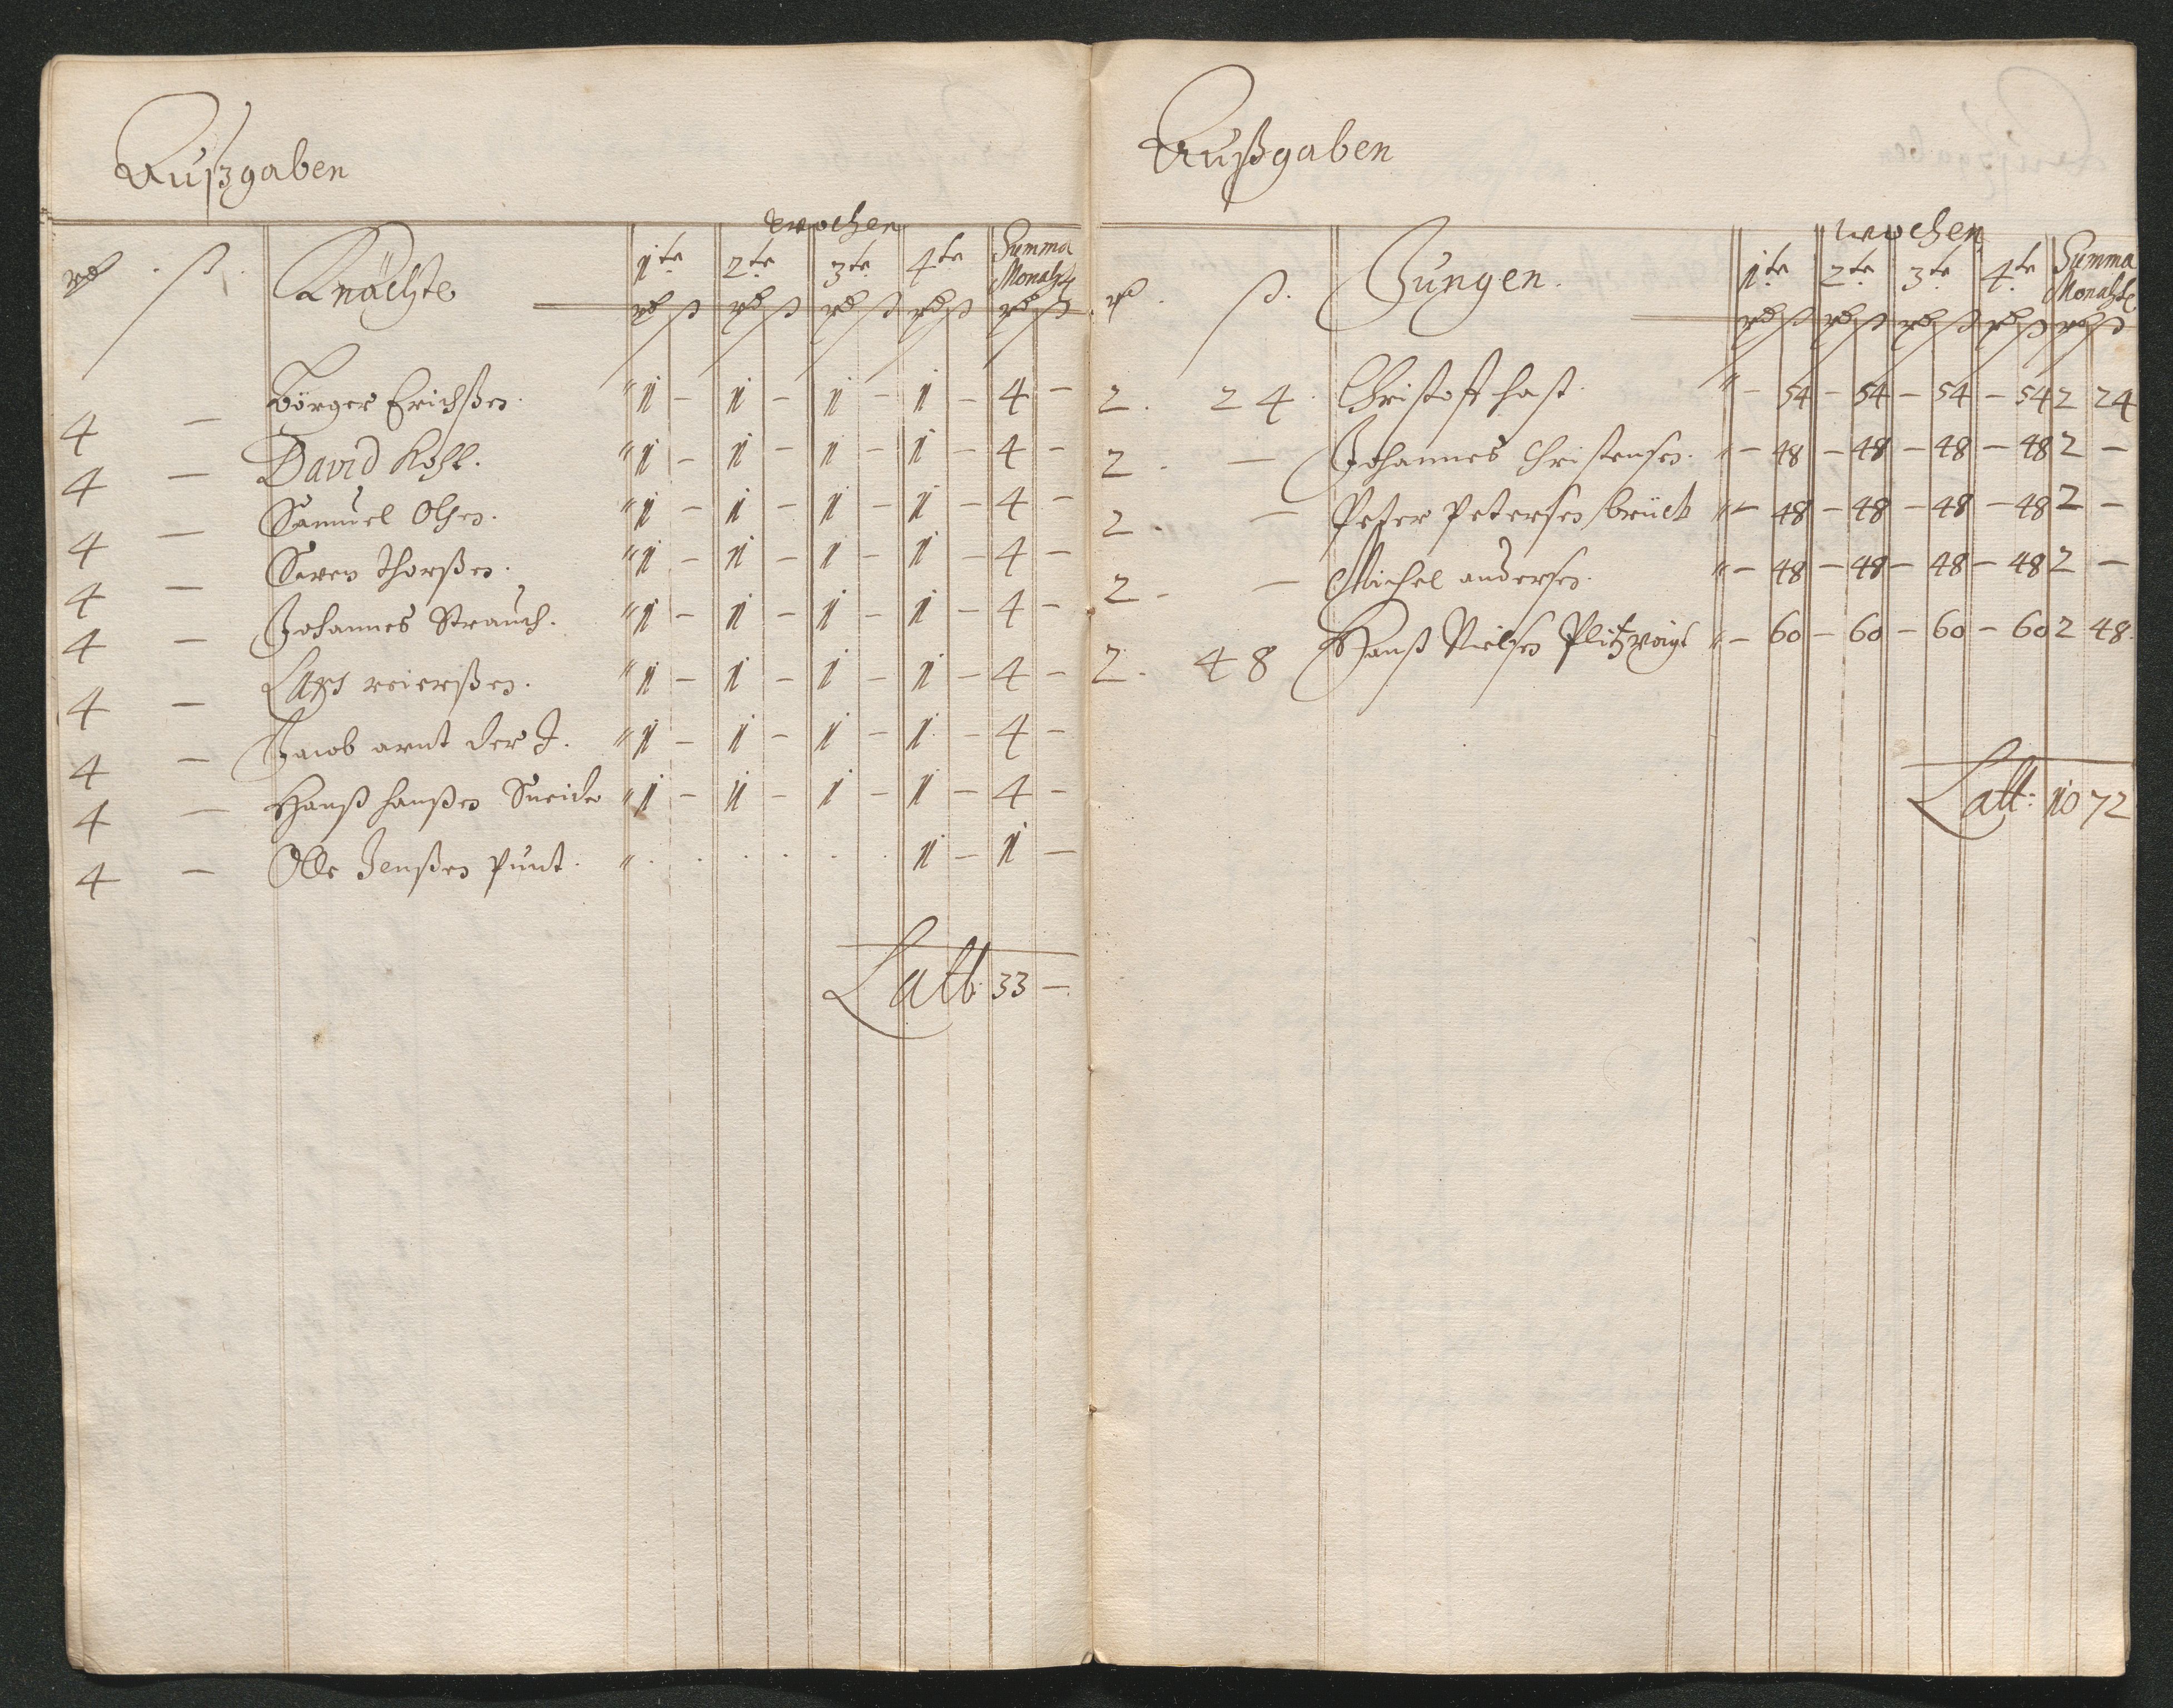 Außgaben
wochen
rd . ß . Knächte 1te 2te 3te 4te Summa Monahtl
rd ß rd ß rd ß rd ß rd ß
4 — Börger Erichßen. " 1 – 1 – 1 – 1 – 4 –
4 — David Kohl. " 1 – 1 – 1 – 1 – 4 –
4 — Samuel Olsen. " 1 – 1 – 1 – 1 – 4 –
4 — Seven Thorßen. " 1 – 1 – 1 – 1 – 4 –
4 — Johannes Strauch. " 1 – 1 – 1 – 1 – 4 –
4 — Lars reierßen. " 1 – 1 – 1 – 1 – 4 –
4 — Jacob arnt der J. " 1 – 1 – 1 – 1 – 4 –
4 — Hanß hanßen Sneider " 1 – 1 – 1 – 1 – 4 –
4 — Olle Jenßen Punt. " . . . . . . 1 – 1 –
Latt 33 –
Außgaben
wochen
rd . ß. Jungen. 1te 2te 3te 4te Summa Monahtl
rd ß rd ß rd ß rd ß rd ß
2. 24. Christoff hast. " – 54 – 54 – 54 – 54 2 24
2. — Johannes Christensen. " – 48 – 48 – 48 – 48 2 –
2. — Peter Petersen brück " – 48 – 48 – 48 – 48 2 –
2. — Michel andersen. " – 48 – 48 – 48 – 48 2 –
2. 48 Hanß Nielsen Plitzvoigt " – 60 – 60 – 60 – 60 2 48.
Latt: 10 72